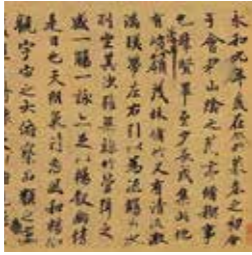 永和九年歲在癸丑暮春之初會
于會稽山陰之蘭亭脩禊事
也羣賢畢至少長咸集此地
有崇山峻領茂林脩竹又有清流激
湍暎帶左右引以為流觴曲水
列坐其次雖無絲竹管弦之
盛一觴一詠亦足以暢敘幽情
是日也天朗氣清惠風和暢仰
觀宇宙之大俯察品類之盛